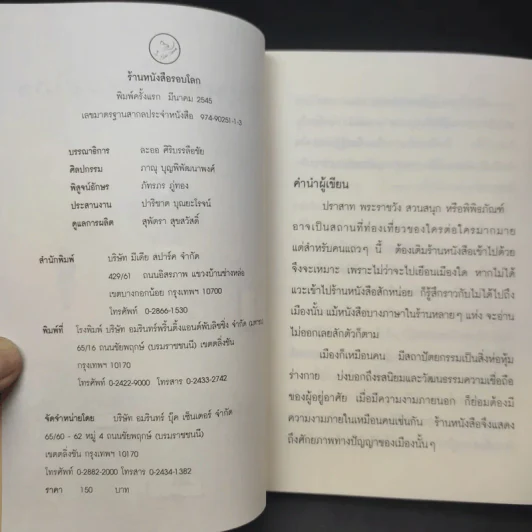 ร้านหนังสือรอบโลก
พิมพ์ครั้งแรก มีนาคม 2545
เลขมาตรฐานสากลประจำหนังสือ 974-90251-1-3
บรรณาธิการ ละออ ศิริบรรลือชัย
ศิลปกรรม ภาณุ บุญพิพัฒนาพงศ์
พิสูจน์อักษร ภัทรภร ภู่ทอง
ประสานงาน ปาริชาต บุณยะโรจน์
ดูแลการผลิต สุพัตรา สุขสวัสดิ์
สำนักพิมพ์ บริษัท มีเดีย สปาร์ค จำกัด
429/61 ถนนอิสรภาพ แขวงบ้านช่างหล่อ
เขตบางกอกน้อย กรุงเทพฯ 10700
โทรศัพท์ 0-2866-1530
พิมพ์ที่ โรงพิมพ์ บริษัท อมรินทร์พริ้นติ้งแอนด์พับลิชชิ่ง จำกัด
65/16 ถนนชัยพฤกษ์ (บรมราชชนนี) เขตตลิ่งชัน
กรุงเทพฯ 10170
โทรศัพท์ 0-2422-9000 โทรสาร 0-2433-2742
จัดจำหน่ายโดย บริษัท อมรินทร์ บุ๊ค เซ็นเตอร์ จำกัด
65/60 - 62 หมู่ 4 ถนนชัยพฤกษ์ (บรมราชชนนี)
เขตตลิ่งชัน กรุงเทพฯ 10170
โทรศัพท์ 0-2882-2000 โทรสาร 0-2434-1382
ราคา 150 บาท
คำนำผู้เขียน
ปราสาท พระราชวัง สวนสนุก หรือพิพิธภัณฑ์
อาจเป็นสถานที่ท่องเที่ยวของใครต่อใครมากมาย
แต่สำหรับคนแถวๆ นี้ ต้องเติมร้านหนังสือเข้าไปด้วย
จึงจะเหมาะ เพราะไม่ว่าจะไปเยือนเมืองใด หากไม่ได้
แวะเข้าไปร้านหนังสือสักหน่อย ก็รู้สึกราวกับไม่ได้ไปถึง
เมืองนั้น แม้หนังสือบางภาษาในร้านหลายๆ แห่ง จะอ่าน
ไม่ออกเลยสักตัวก็ตาม
เมืองก็เหมือนคน มีสถาปัตยกรรมเป็นสิ่งห่อหุ้ม
ร่างกาย บ่งบอกถึงรสนิยมและวัฒนธรรมความเชื่อถือ
ของผู้อยู่อาศัย เมื่อมีความงามภายนอก ก็ย่อมต้องมี
ความงามภายในเหมือนคนเช่นกัน ร้านหนังสือจึงแสดง
ถึงศักยภาพทางปัญญาของเมืองนั้นๆ